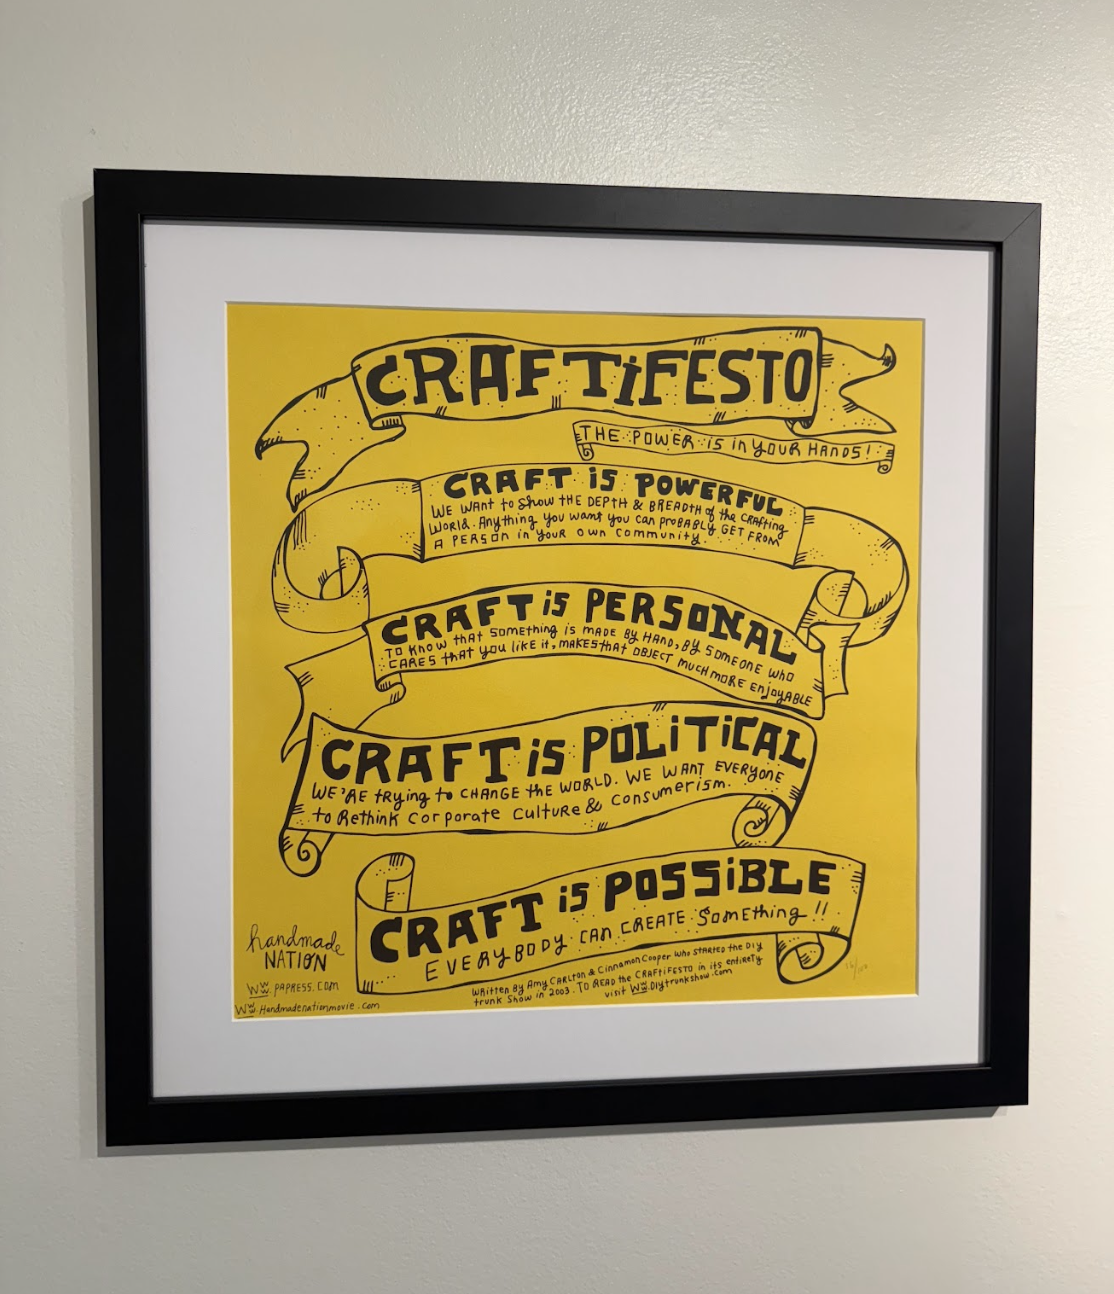 CRAFTiFESTO
THE POWER iS in YOUR HANDS!
CRAFT iS POWERFUL
WE WANT to Show THE DEPTH & BREADTH of the CRAfting
WORLD. Anything you want you can pRObABLY GET FROM
A PERSON in YOUR OWN Community.
CRAFT iS PERSONAL
TO KNOW THAT SOMETHING IS MADE BY HAND, BY SOMEONE WHO
CARES tHAt YOU LIKE it, MAKES tHAt OBJECT MUCH MORE EnjoyABLE
CRAFT iS POLiTiCAL
WE'RE tRying to CHANGE the WORLD. WE WANT EVERYone
to REthink CorpoRate CultuRE & Consumerism.
CRAFT iS POSSiBLE
EVERYBODY CAN CREATE SomEthing!!
handmade
NATION
WWW.PAPRESS.COM
WWW.Handmadenationmovie.com
WRitten By Amy CARLTON & Cinnamon Cooper Who StARtED the DIY
trunk Show in 2003. TO READ the CRAFTiFESTO in its entiREty
visit WWW.DIytrunkshow.com